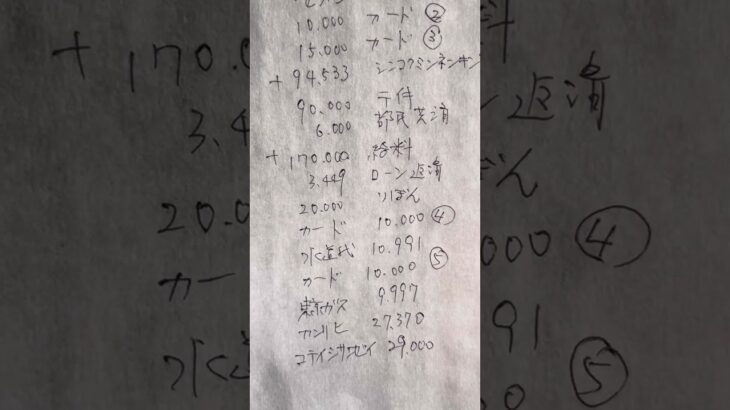 10.000 カード ②
15.000 カード ③
+ 94.533 シンコクミンネンキン
90.000
6.000 都民共済
+ 170.000 給料
3.449 ローン返済
20.000 りぼん
カード 10.000 ④
水道代 10.991
カード 10.000 ⑤
東京ガス 9.997
カンリヒ 27.370
コテイシサンゼイ 29.000